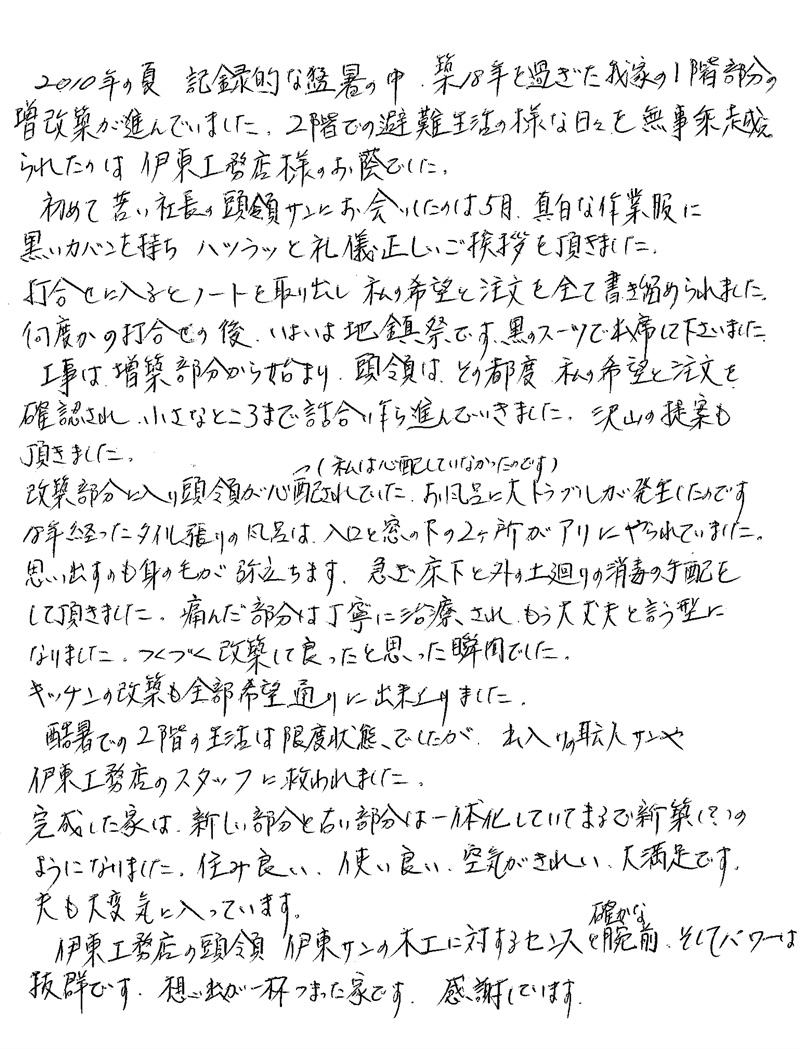 2010年の夏 記録的な猛暑の中、築18年を過ぎた我家の1階部分の
増改築が進んでいました。2階での避難生活の様な日々を無事乗越え
られたのは伊東工務店様のお蔭でした。
初めて若い社長の頭領サンにお会いしたのは5月、真白な作業服に
黒いカバンを持ち ハツラツと礼儀正しいご挨拶を頂きました。
打合せに入るとノートを取り出し 私の希望と注文を全て書き留められました。
何度かの打合せの後、いよいよ地鎮祭です。黒のスーツで出席して下さいました。
工事は、増築部分から始まり、頭領は、その都度 私の希望と注文を
確認され、小さなところまで話合い乍ら進んでいきました。沢山の提案も
頂きました。
(私は心配していなかったのです)
改築部分に入り頭領が心配されていた、お風呂に大トラブルが発生したのです
18年経ったタイル張りの風呂は、入口と窓の下の2ヶ所がアリにやられていました。
思い出すのも身の毛が弥立ちます。急ぎ床下と外の土廻りの消毒の手配を
して頂きました。痛んだ部分は丁寧に治療され、もう大丈夫と言う型に
なりました。つくづく改築して良ったと思った瞬間でした。
キッチンの改築も全部希望通りに出来上りました。
酷暑での2階の生活は限度状態でしたが、出入りの職人サンや
伊東工務店のスタッフに救われました。
完成した家は、新しい部分と古い部分は一体化していてまるで新築(?)の
ようになりました。住み良い、使い良い、空気がきれい、大満足です。
夫も大変気に入っています。
伊東工務店の頭領 伊東サンの木工に対するセンスと確かな腕前、そしてパワーは
抜群です。想い出が一杯つまった家です。感謝しています。